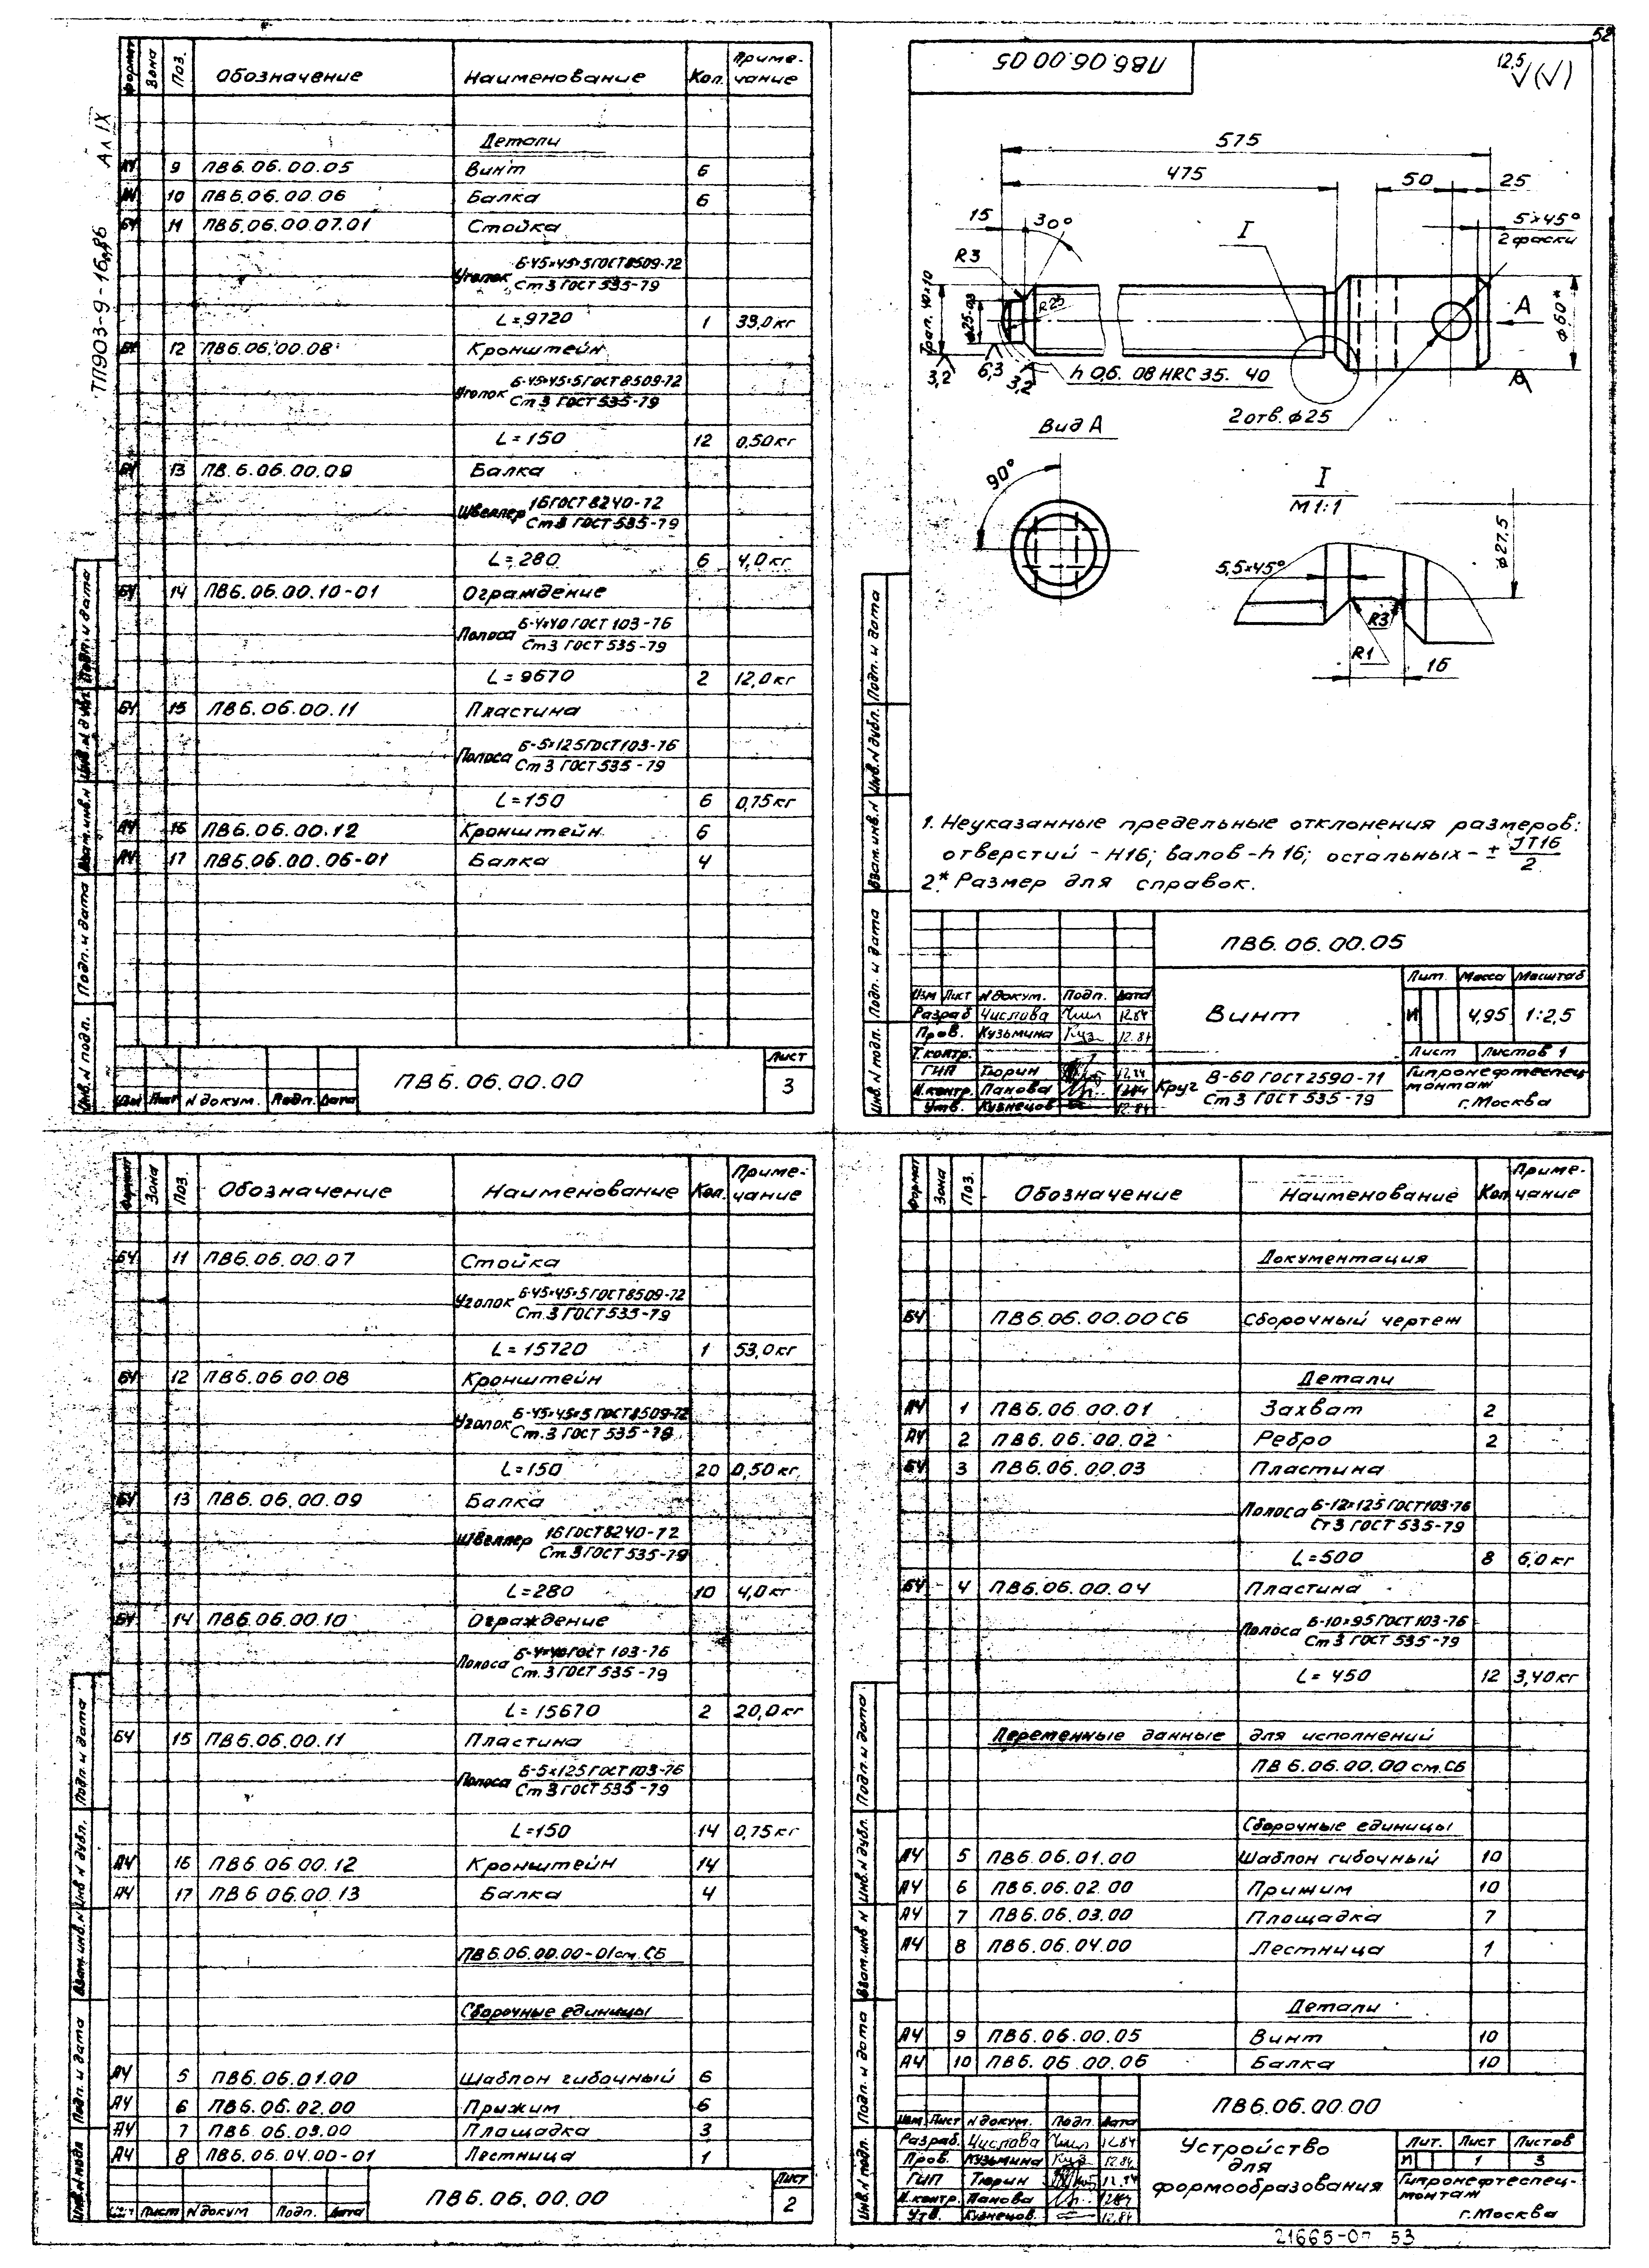 52
ТП903-9-16.86 Ал IX
Формат Зона Поз. Обозначение Наименование Кол. Приме-чание
Детали
А4 9 ПВ6.06.00.05 Винт 6
А4 10 ПВ6.06.00.06 Балка 6
БЧ 11 ПВ6.06.00.07.01 Стойка
Уголок Б-45×45×5 ГОСТ 8509-72
Ст3 ГОСТ 535-79
L=9720 1 33,0кг
БЧ 12 ПВ6.06.00.08 Кронштейн
Уголок Б-45×45×5 ГОСТ 8509-72
Ст 3 ГОСТ 535-79
L=150 12 0,50кг
БЧ 13 ПВ.6.06.00.09 Балка
Швеллер 16 ГОСТ 8240-72
Ст3 ГОСТ 535-79
L=280 6 4,0кг
БЧ 14 ПВ6.06.00.10-01 Ограждение
Полоса Б-4×40 ГОСТ 103-76
Ст3 ГОСТ 535-79
L=9670 2 12,0кг
БЧ 15 ПВ6.06.00.11 Пластина
Полоса Б-5×125 ГОСТ 103-76
Ст 3 ГОСТ 535-79
L=150 6 0,75кг
А4 16 ПВ6.06.00.12 Кронштейн 6
А4 17 ПВ6.06.00.06-01 Балка 4
Инв.N подл. Подп. и дата Взам.инв.N Инв.N дубл. Подп. и дата
Изм Лист N докум. Подп. Дата
ПВ6.06.00.00
Лист
3
ПВ6.06.00.05
12,5 √(√)
575
475 50 25
15 30° I 5×45°
2 фаски
R3
Трап. 40×10
R25
А
ϕ60*
3,2 6,3 3,2
h 0,6. 08 HRC 35. 40
2 отв. ϕ25
Вид А
90°
I
М1:1
ϕ27,5
5,5×45°
R3
R1
16
1. Неуказанные предельные отклонения размеров:
отверстий - Н16; валов - h 16; остальных - ± JT16
2
2.* Размер для справок.
Инв.N подл. Подп. и дата Взам.инв.N Инв.N дубл. Подп. и дата
ПВ6.06.00.05
Винт
Лит. Масса Масштаб
И 4,95 1:2,5
Лист Листов 1
Изм Лист N докум. Подп. Дата
Разраб Числова 12.84
Пров. Кузьмина 12.84
Т.контр.
ГИП Тюрин 12.84
Н.контр. Панова 12.84
Утв. Кузнецов 12.84
Круг В-60 ГОСТ 2590-71
Ст 3 ГОСТ 535-79
Гипронефтеспец-
монтаж
г.Москва
Формат Зона Поз. Обозначение Наименование Кол. Приме-чание
БЧ 11 ПВ6.06.00.07 Стойка
Уголок Б-45×45×5 ГОСТ 8509-72
Ст.3 ГОСТ 535-79
L=15720 1 53,0кг
БЧ 12 ПВ6.06.00.08 Кронштейн
Уголок Б-45×45×5 ГОСТ 8509-72
Ст.3 ГОСТ 535-79
L=150 20 0,50кг
БЧ 13 ПВ6.06.00.09 Балка
Швеллер 16 ГОСТ 8240-72
Ст.3 ГОСТ 535-79
L=280 10 4,0кг
БЧ 14 ПВ6.06.00.10 Ограждение
Полоса Б-4×40 ГОСТ 103-76
Ст.3 ГОСТ 535-79
L=15670 2 20,0кг
БЧ 15 ПВ6.06.00.11 Пластина
Полоса Б-5×125 ГОСТ 103-76
Ст 3 ГОСТ 535-79
L=150 14 0,75кг
А4 16 ПВ6.06.00.12 Кронштейн 14
А4 17 ПВ6.06.00.13 Балка 4
ПВ6.06.00.00-01 см. СБ
Сборочные единицы
А4 5 ПВ6.06.01.00 Шаблон гибочный 6
А4 6 ПВ6.06.02.00 Прижим 6
А4 7 ПВ6.06.03.00 Площадка 3
А4 8 ПВ6.06.04.00-01 Лестница 1
Инв.N подл Подп. и дата Взам.инв.N Инв N дубл. Подп. и дата
Изм Лист N докум Подп. Дата
ПВ6.06.00.00
Лист
2
Формат Зона Поз. Обозначение Наименование Кол. Приме-чание
Документация
БЧ ПВ6.06.00.00 СБ Сборочный чертеж
Детали
А4 1 ПВ6.06.00.01 Захват 2
А4 2 ПВ6.06.00.02 Ребро 2
БЧ 3 ПВ6.06.00.03 Пластина
Полоса Б-12×125 ГОСТ 103-76
Ст 3 ГОСТ 535-79
L=500 8 6,0кг
БЧ 4 ПВ6.06.00.04 Пластина
Полоса Б-10×95 ГОСТ 103-76
Ст 3 ГОСТ 535-79
L= 450 12 3,40кг
Переменные данные для исполнений
ПВ 6.06.00.00 см.СБ
Сборочные единицы
А4 5 ПВ6.06.01.00 Шаблон гибочный 10
А4 6 ПВ6.06.02.00 Прижим 10
А4 7 ПВ6.06.03.00 Площадка 7
А4 8 ПВ6.06.04.00 Лестница 1
Детали
А4 9 ПВ6.06.00.05 Винт 10
А4 10 ПВ6.06.00.06 Балка 10
Инв.N подл. Подп. и дата Взам.инв N Инв.N дубл. Подп. и дата
ПВ6.06.00.00
Изм. Лист N докум. Подп. Дата
Разраб. Числова 12.84
Пров. Кузьмина 12.84
ГИП Тюрин 12.84
Н.контр. Панова 12.84
Утв. Кузнецов. 12.84
Устройство
для
формообразования
Лит. Лист Листов
И 1 3
Гипронефтеспец-
монтаж
г.Москва
21665-0 53